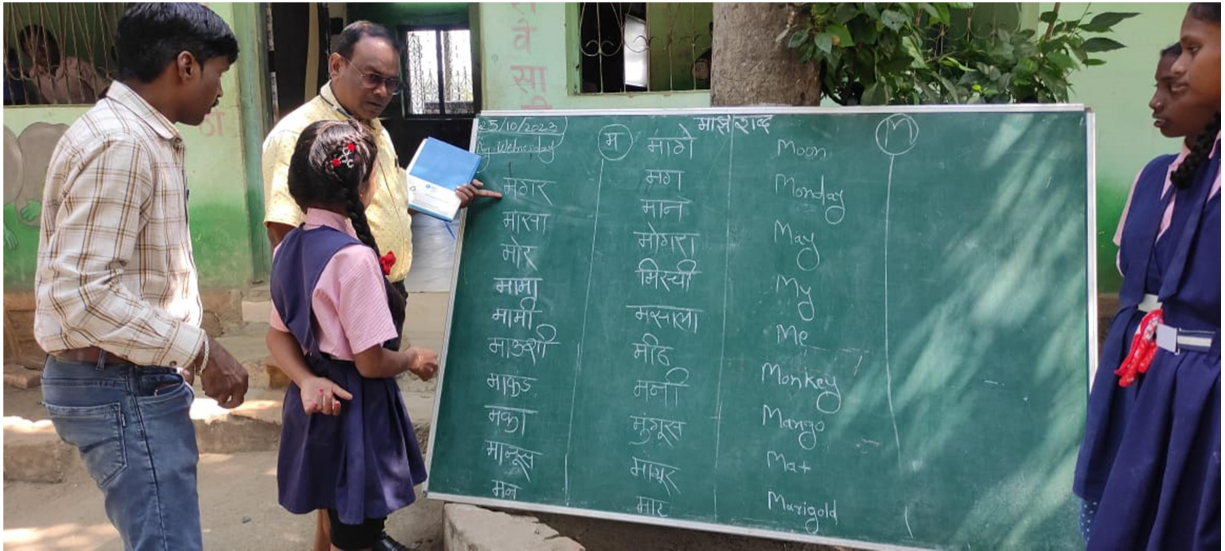 वे
सा
25/10/2023
माझे शब्द
Wednesday
म
M
मगर
मासा
मोर
मामा
मामी
माऊशी
माकड
मका
माणूस
मन
मागे
मग
माने
मोगरा
मिरची
मसाला
मीठ
मनी
मुंगूस
मयूर
माट
Moon
Monday
May
My
Me
Monkey
Mango
Mat
Marigold